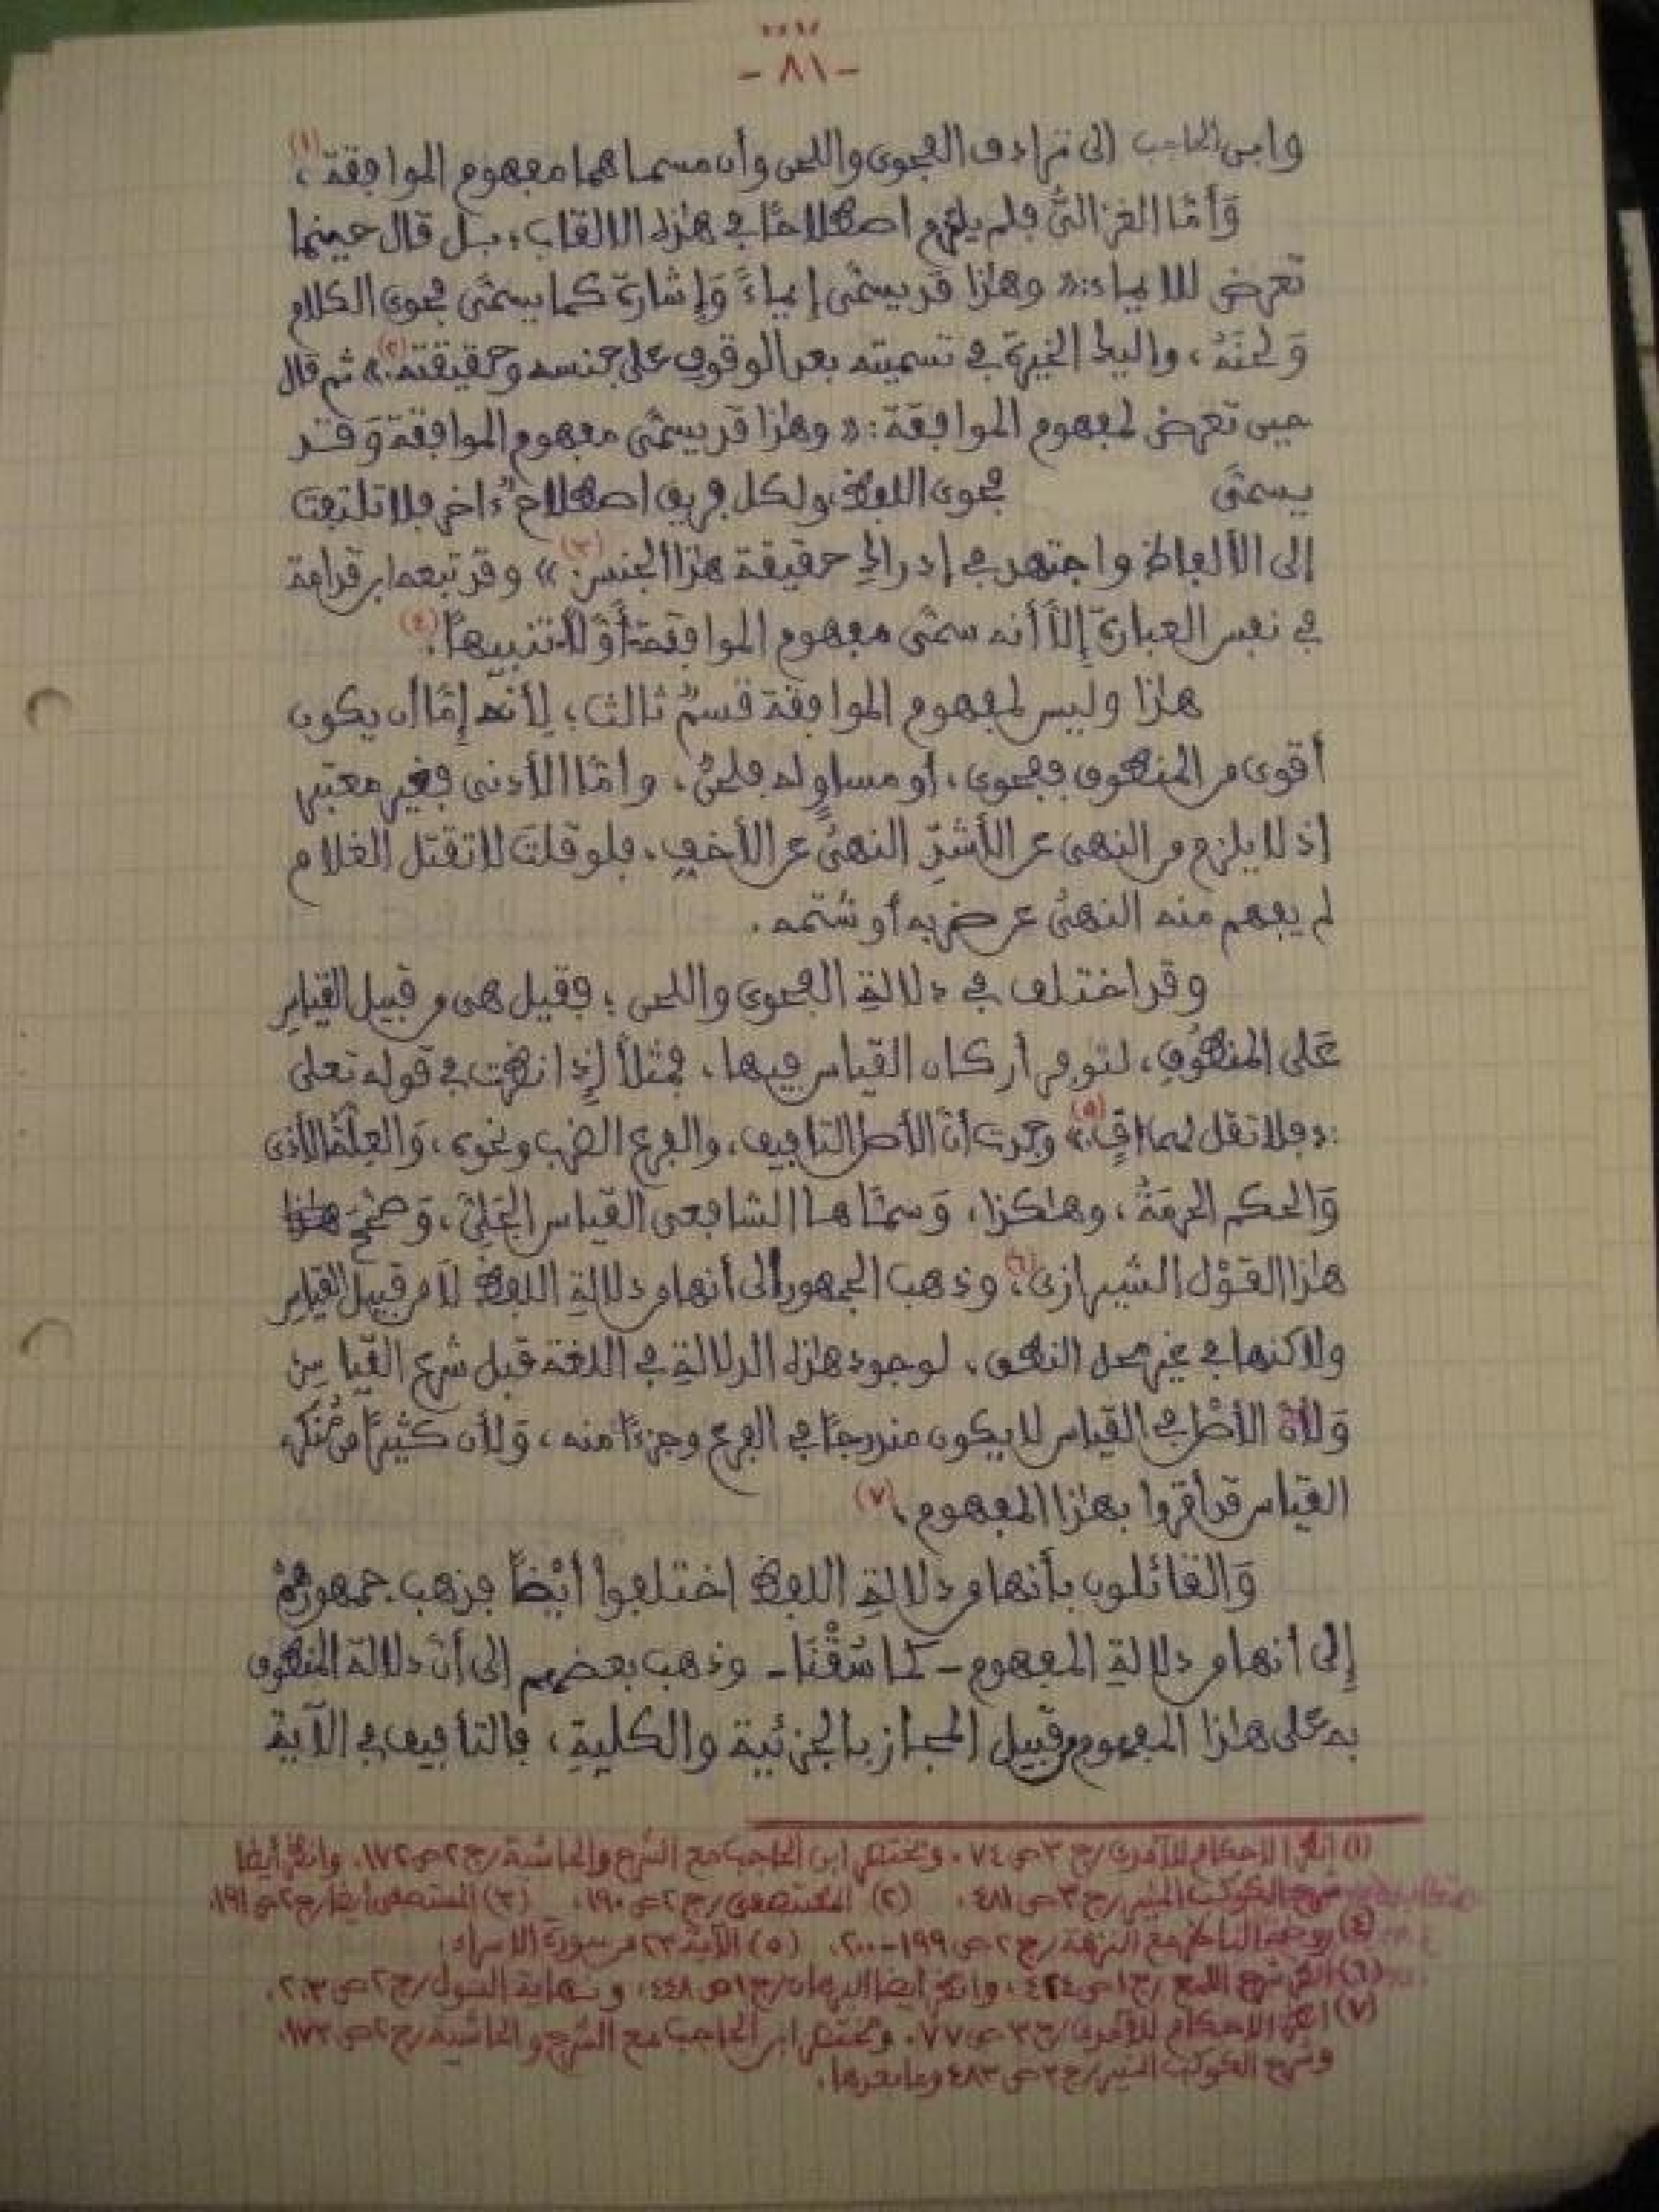 - ٨١ -
وابن الحاجب إلى ترادف الفحوى واللحن وأن مسماهما مفهوم الموافقة (١)،
وَأمَّا الغزاليُّ فلم يلتزم اصطلاحًا في هٰذه الالقاب، بـل قال حينما
تعرض للايماء: « وهٰذا قد يسمَّى إيماءً وَإشارة كما يسمَّى فحوى الكلام
وَلحنَهُ، واليك الخيرة في تسميته بعد الوقوف على جنسه وحقيقته.» (٢) ثم قال
حين تعرض لمفهوم الموافقة: « وهٰذا قد يسمَّى مفهوم الموافقة وَقـد
يسمَّى فحوى اللفظ، ولكل فريق اصطلاحٌ ءاخر فلا تلتفت
إلى الألفاظ واجتهد في إدراك حقيقة هٰذا الجنس (٣)» وقد تبعه ابن قدامة
في نفس العبارة إلَّا أنه سمَّى مفهوم الموافقة أوَّلًا تنبيهًا. (٤)
هٰذا وليس لمفهوم الموافقة قسمٌ ثالث، لِأنّه إمَّا أن يكون
أقوى من المنطوق ففحوى، أو مساوٍ له فلحنٌ، وامَّا الأدنى فغير معتبر
إذ لا يلزم من النهي عن الأشدِّ النهيُ عن الأخف، فلو قلتَ لا تقتل الغلام
لم يفهم منه النهيُ عن ضربه أو شتمه.
وقد اختلف في دلالةِ الفحوى واللحن؛ فقيل هي من قبيل القياسِ
عَلى المنطُوقِ، لتوفر أركان القياس فيها، فمثلاً إذا نظرت في قوله تعلى
: «فلا تقل لهما افٍّ.» (٥) وجدت أنّ الأصل التافيف، والفرع الضرب ونحوه، وَالعِلّة الأذى
وَالحكم الحرمَةُ، وهٰكذا، وَسمَّاها الشافعي القياس الجَلِيَّ، وَصَحَّحَ هٰذا
هٰذا القَوْل الشيرازي (٦)، وذهب الجمهور إلى أنها من دلالةِ اللفظ لَا من قبيل القياسِ
ولاكنها في غير محل النطق، لوجود هٰذه الدلالةِ في اللغة قبل شرع القياسِ
وَلأنّ الأصْل في القياس لا يكون مندرجًا في الفرع وجزءًا منه، وَلأن كثيرًا من مُنكري
القياس قد أقروا بهٰذا المفهوم. (٧)
وَالقائلون بأنها من دلالةِ اللفظ اختلفوا أيْضاً فذهب جمهورهُمْ
إلى أنها من دلالةِ المفهوم - كما سُقْنَا - وذهب بعضهم إلى أنّ دلالة المنطوق
به عَلى هٰذا المفهوم من قبيل المجاز بالجزئية والكليةِ، فالتأفيف في الآيةِ
(١) انظر الاحكام للآمدي/ج ٣ ص ٧٤. ومختصر ابن الحاجب مع الشرح والحاشية/ج ٢ ص ١٧٢. وانظر أيضا
شرح الكوكب المنير/ج ٣ ص ٤٨١. (٢) المستصفى/ج ٢ ص ١٩٠. (٣) المستصفى أيضا/ج ٢ ص ١٩١.
(٤) روضة الناظر مع النزهة/ج ٢ ص ١٩٩-٢٠٠. (٥) الآية ٢٣ من سورة الاسراء.
(٦) انظر شرح اللمع/ج ١ ص ٤٢٤، وانظر أيضا البرهان/ج ١ ص ٤٤٨، ونهاية السول/ج ٢ ص ٢٠٣.
(٧) انظر الاحكام للآمدي/ج ٣ ص ٧٧. ومختصر ابن الحاجب مع الشرح والحاشية/ج ٢ ص ١٧٣.
وشرح الكوكب المنير/ج ٣ ص ٤٨٣ وما بعدها.